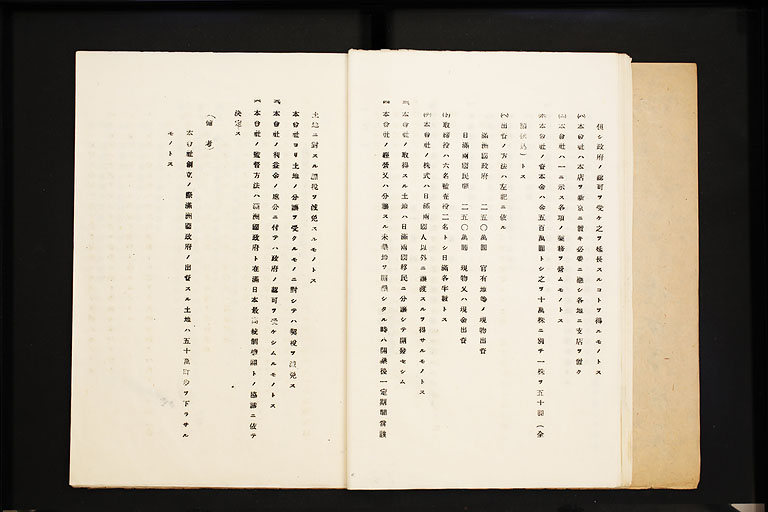 但シ政府ノ認可ヲ受ケ之ヲ延長スルコトヲ得ルモノトス
本會社ハ本店ヲ新京ニ置キ必要ニ應シ各地ニ支店ヲ置ク
本會社ハ一ニ示ス各項ノ業務ヲ營ムモノトス
本會社ノ資本金ハ金五百萬圓トシ之ヲ十萬株ニ別チ一株ヲ五十圓(全
額拂込)トス
出資ノ方法ハ左記ニ依ル
滿洲國政府 二五〇萬圓 官有地等ノ現物出資
日滿兩國民間 二五〇萬圓 現物又ハ現金出資
取締役ハ六名監査役二名トシ日滿各半數トス
本會社ノ株式ハ日滿兩國人以外ニ讓渡スルヲ得サルモノトス
本會社ノ取得スル土地ハ日滿兩國移民ニ分讓シテ開發セシム
本會社ノ經營又ハ分讓スル未墾地ヲ開墾シタル時ハ開墾後一定期間當該
土地ニ對スル課稅ヲ減免スルモノトス
本會社ヨリ土地ノ分讓ヲ受クルモノニ對シテハ契稅ヲ減免ス
本會社ノ利益金ノ處分ニ付テハ政府ノ認可ヲ受ケシムルモノトス
本會社ノ監督方法ハ滿洲國政府ト在滿日本最高統制機關トノ協議ニ依テ
決定ス
(備考)
本會社創立ノ際滿洲國政府ノ出資スル土地ハ五十萬町步ヲ下ラサル
モノトス